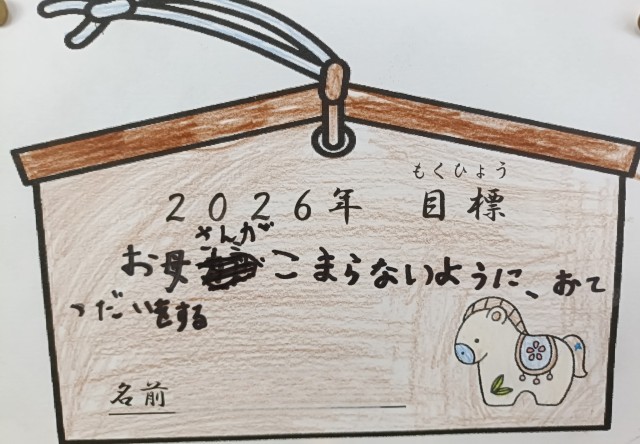 もくひょう
2026年 目標
さんが
お母こまらないように、おて
つだいをする
名前